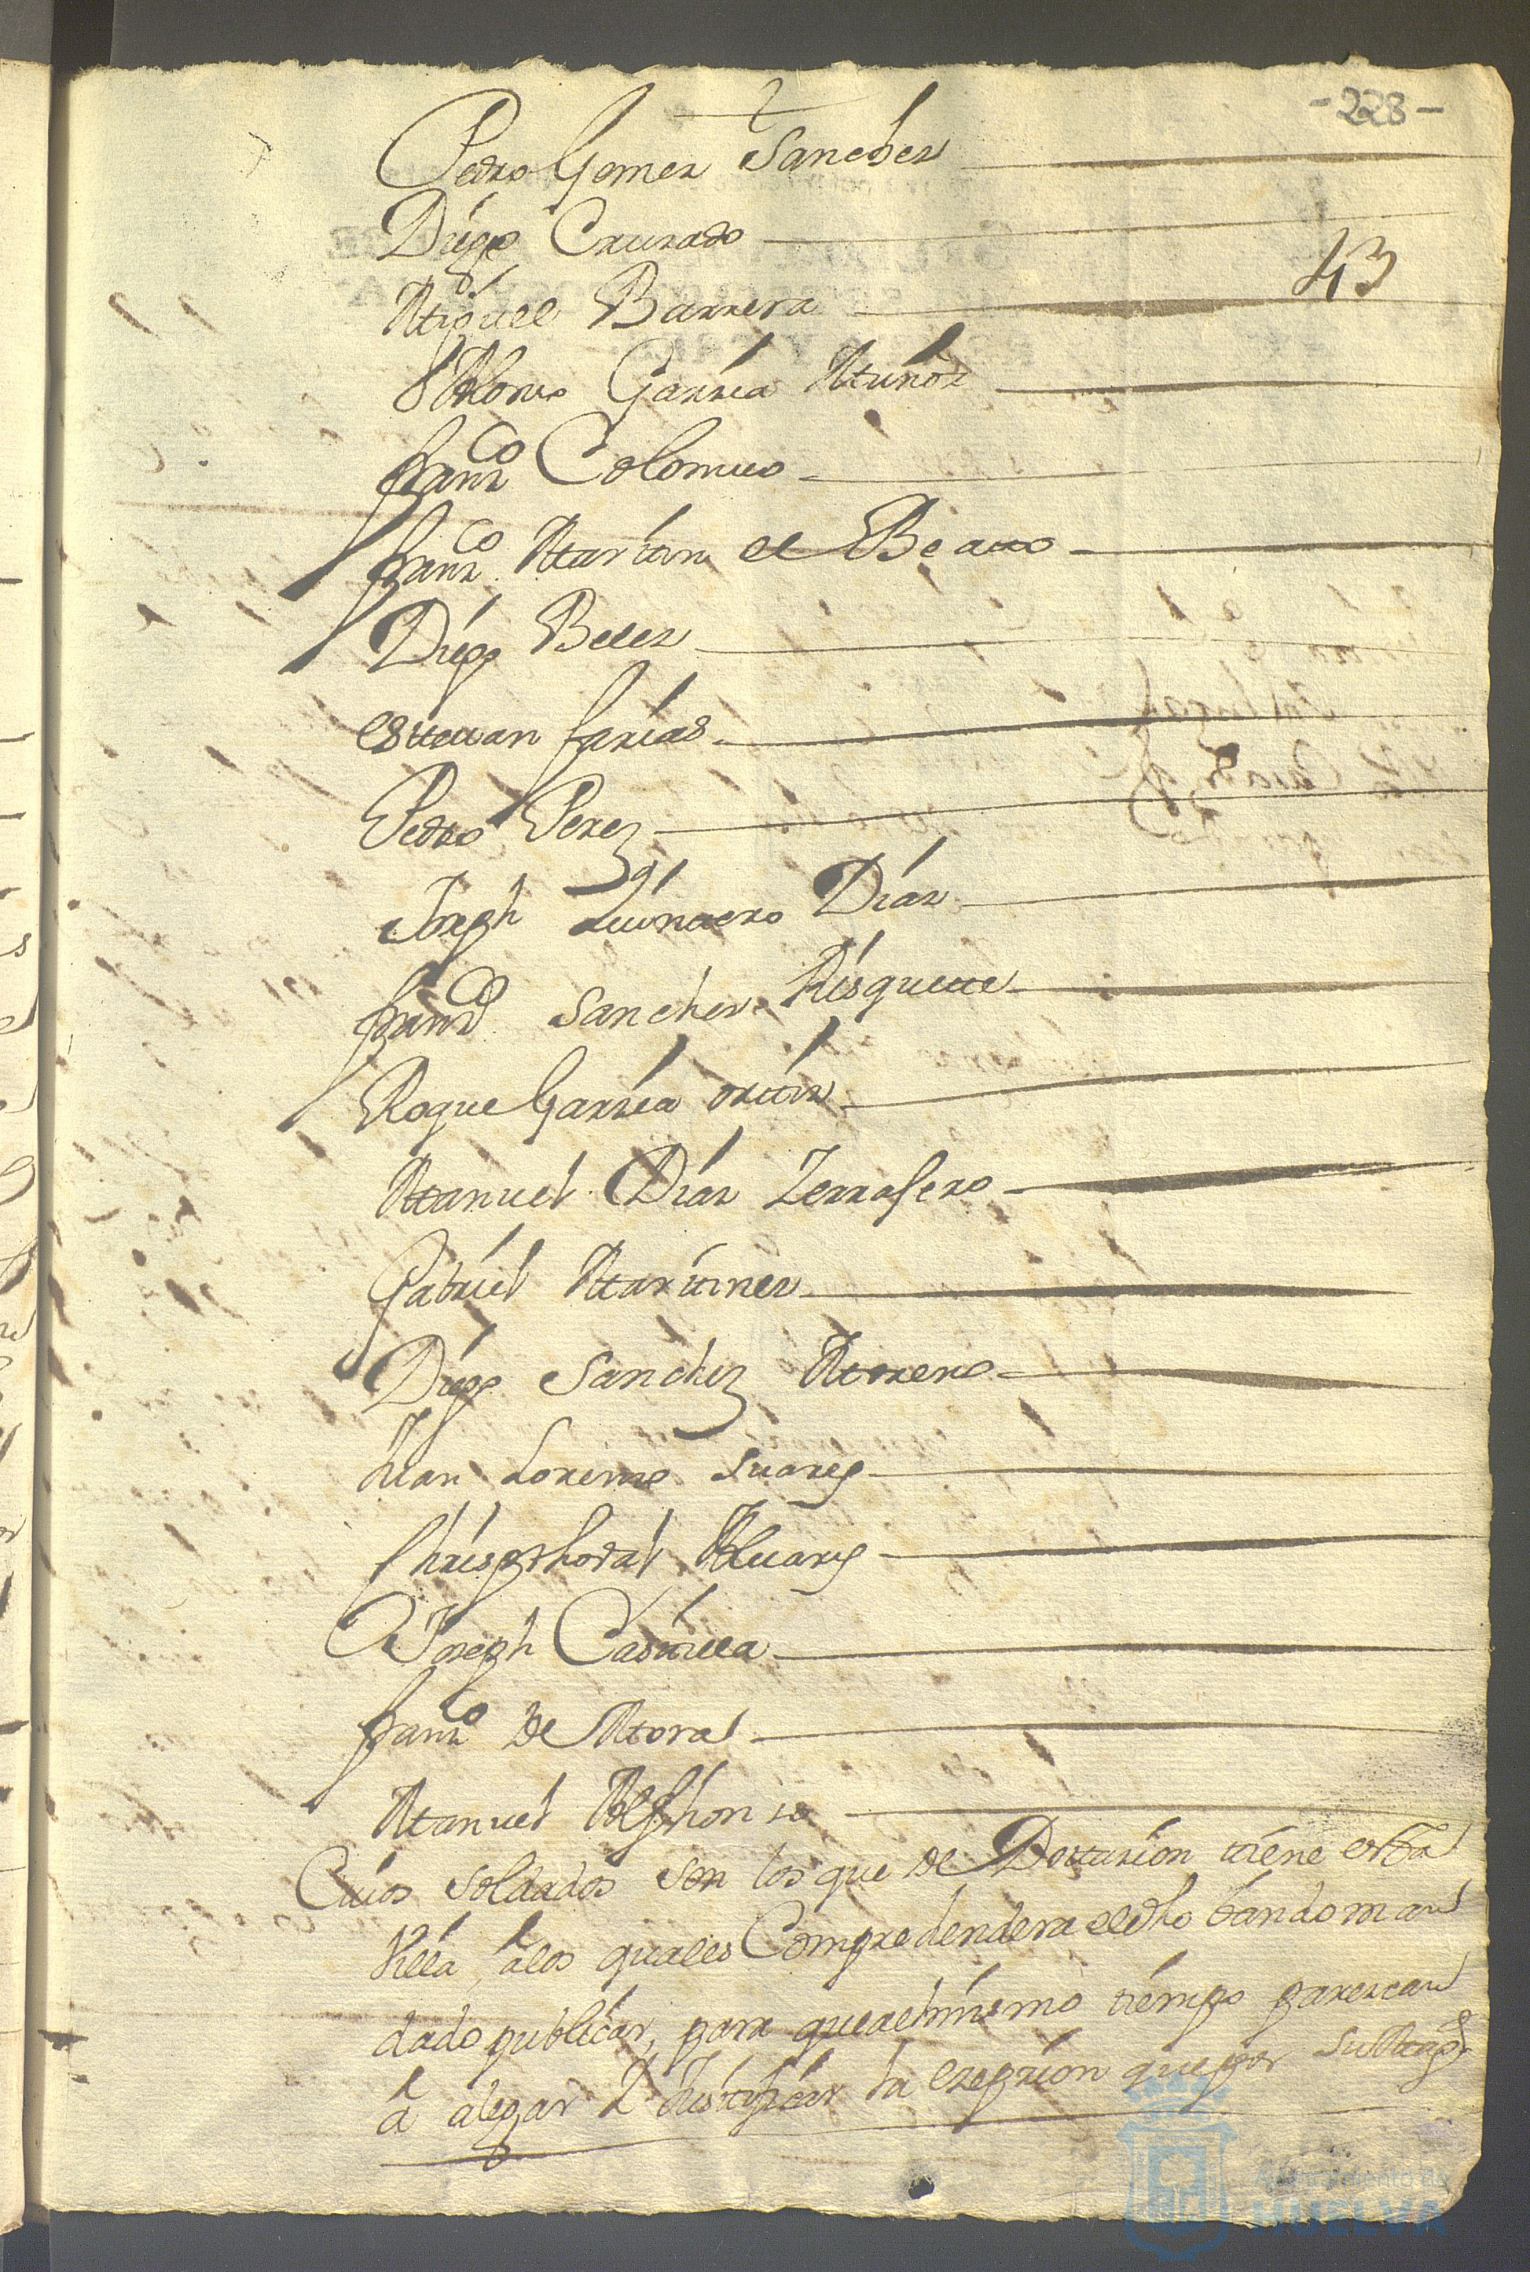 -228-
Pedro Gomez Sanchez
Diego Cruzado
43
Miguel Barrera
Alonso Garzia Muñoz
franz.co Colomuo
franz.co Martin el Beatto
Diego Belez
estteuan farias
Pedro Perez
Joseph Quinttero Diaz
franz.co Sanchez Risquette
Roque Garzia ortiz
Manuel Diaz Terrafero
Gabriel Martinez
Diego Sanchez Moreno
Juan Lorenzo Suarez
Christhoval Aluarez
Joseph Castilla
franz.co de Mora
Manuel Alfhonso
Cuios soldados son los que de Dottazion tiene estta
Villa, a los quales Compredendera el dho bando man
dado publicar, para que al mismo tiempo parezcan
a alegar I Justificar la exepzion que por su Magd
Ayuntamiento de
HUELVA